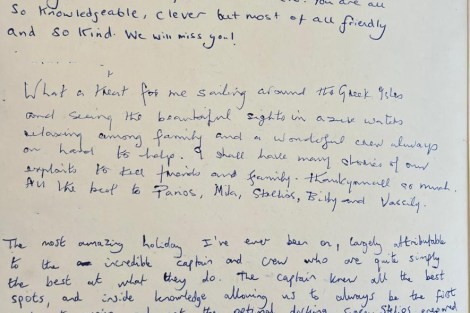 You are all
so knowledgeable, clever but most of all friendly
and so kind. We will miss you!
What a treat for me sailing around the Greek isles
and seeing the beautiful sights in azure waters
relaxing among family and a wonderful crew always
on hand to help. I shall have many stories of our
exploits to tell friends and family. Thankyou all so much.
All the best to Panos, Mila, Stelios, and Vassily.
The most amazing holiday I've ever been on, largely attributable
to the incredible captain and crew who are quite simply
the best at what they do. The captain knew all the best
spots, and inside knowledge allowing us to always be the first
docking Stelios prepared